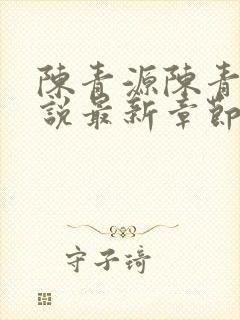 陳青源陳青
說最新章節
守子琦